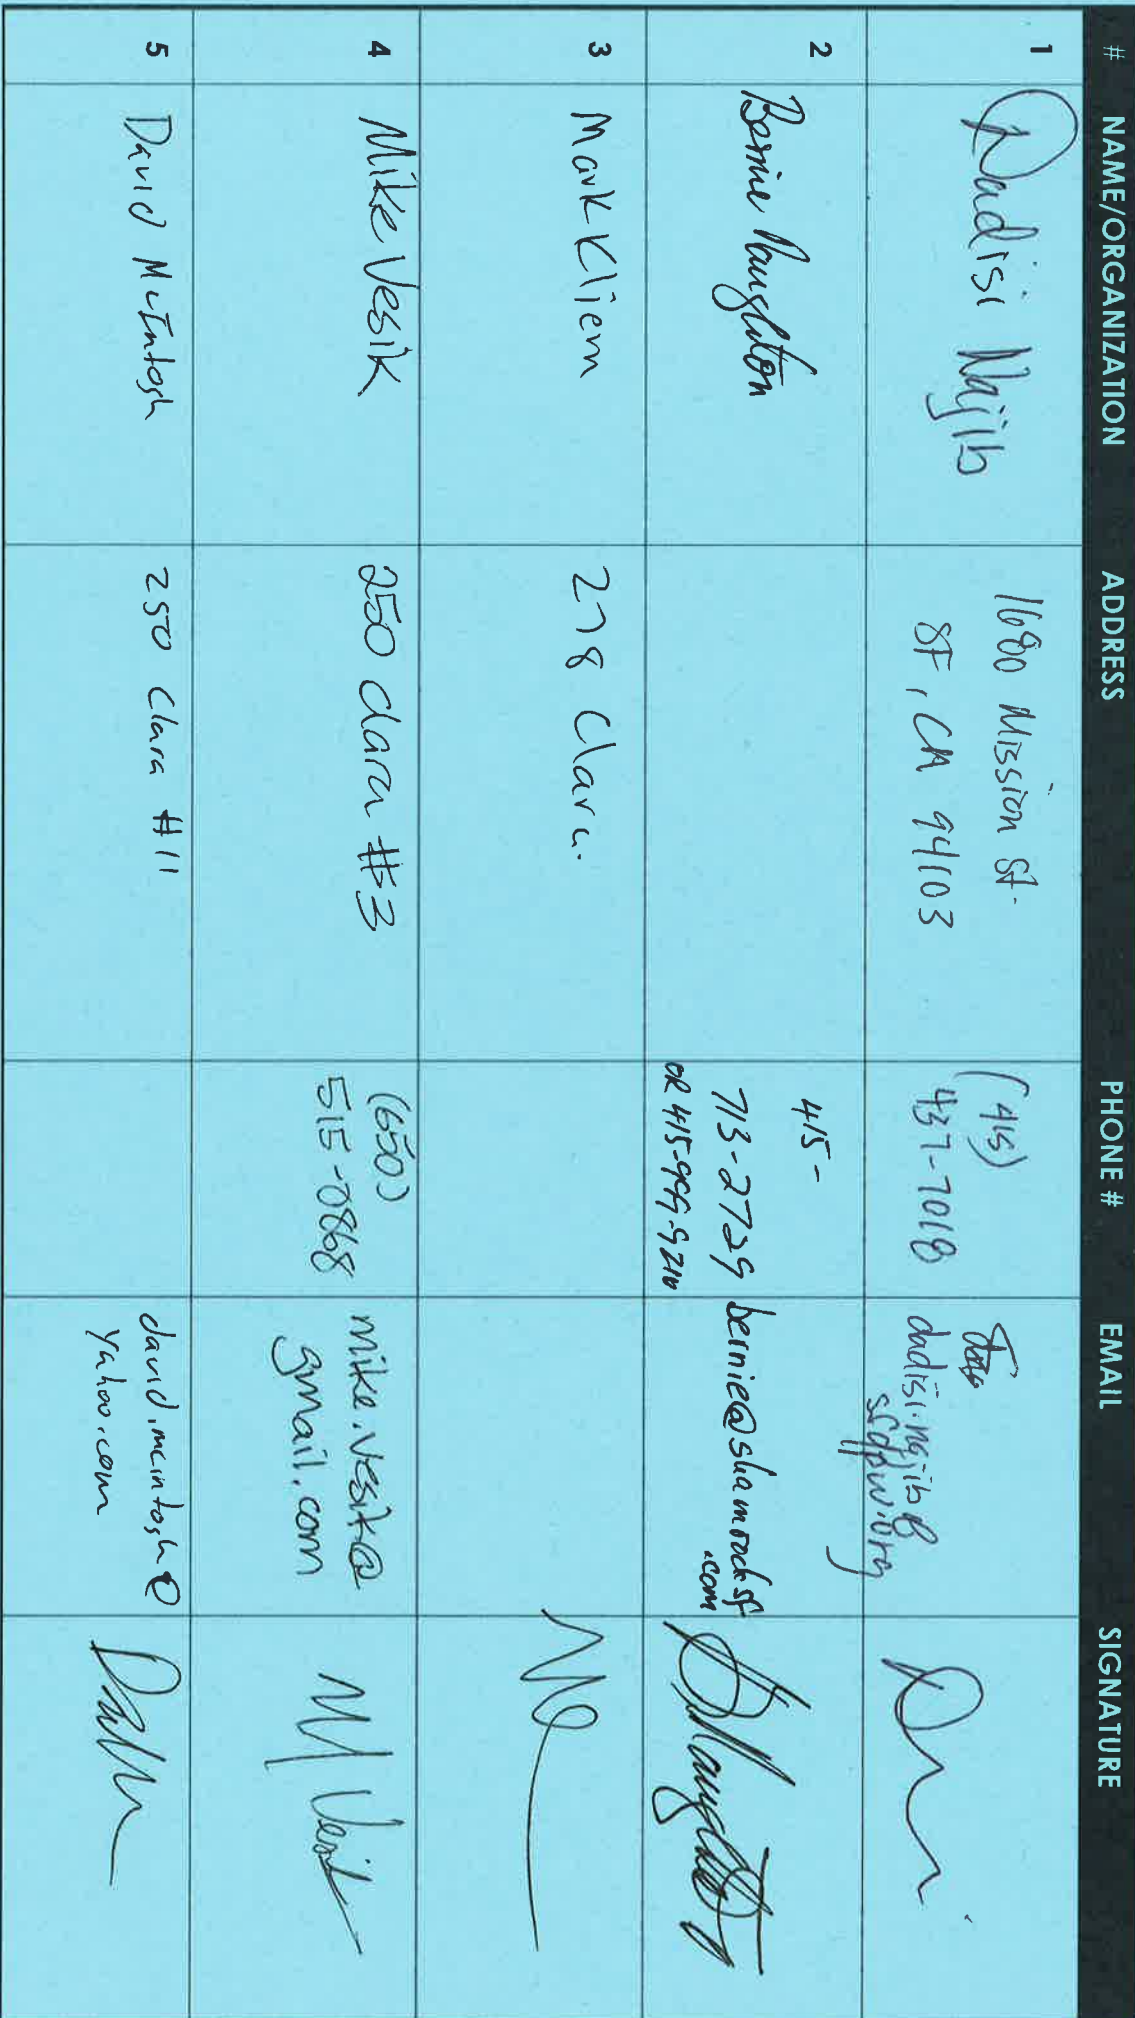 # NAME/ORGANIZATION ADDRESS PHONE # EMAIL SIGNATURE
1 Dadisi Najib
1680 Mission St.
SF, CA 94103
(415)
437-7018
dadisi.najib@
sfdpw.org
2 Bernie Naughton
415-
713-2729
OR 415-
bernie@shamrocksf
.com
BNaughton
3 Mark Kliem
278 Clara.
4 Mike Vesik
250 Clara #3
(650)
515-0868
mike.vesik@
gmail.com
M Vesik
5 David McIntosh
250 Clara #11
david.mcintosh@
yahoo.com